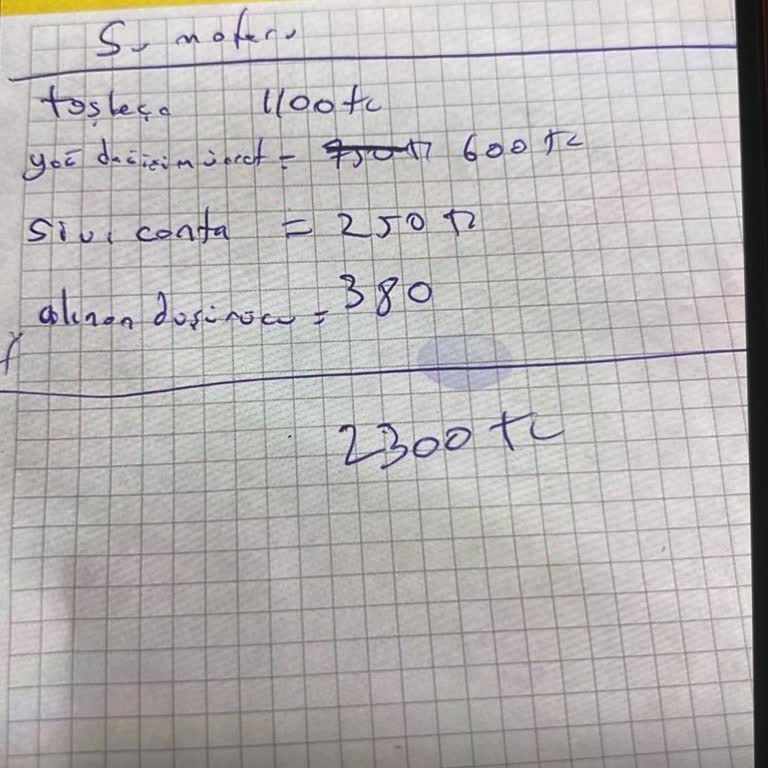 Su motoru
taşleça 1100 tl
yağ değişim ücret = 750 tl 600 tl
sıvı conta = 250 tl
alınan = 380
2300 tl